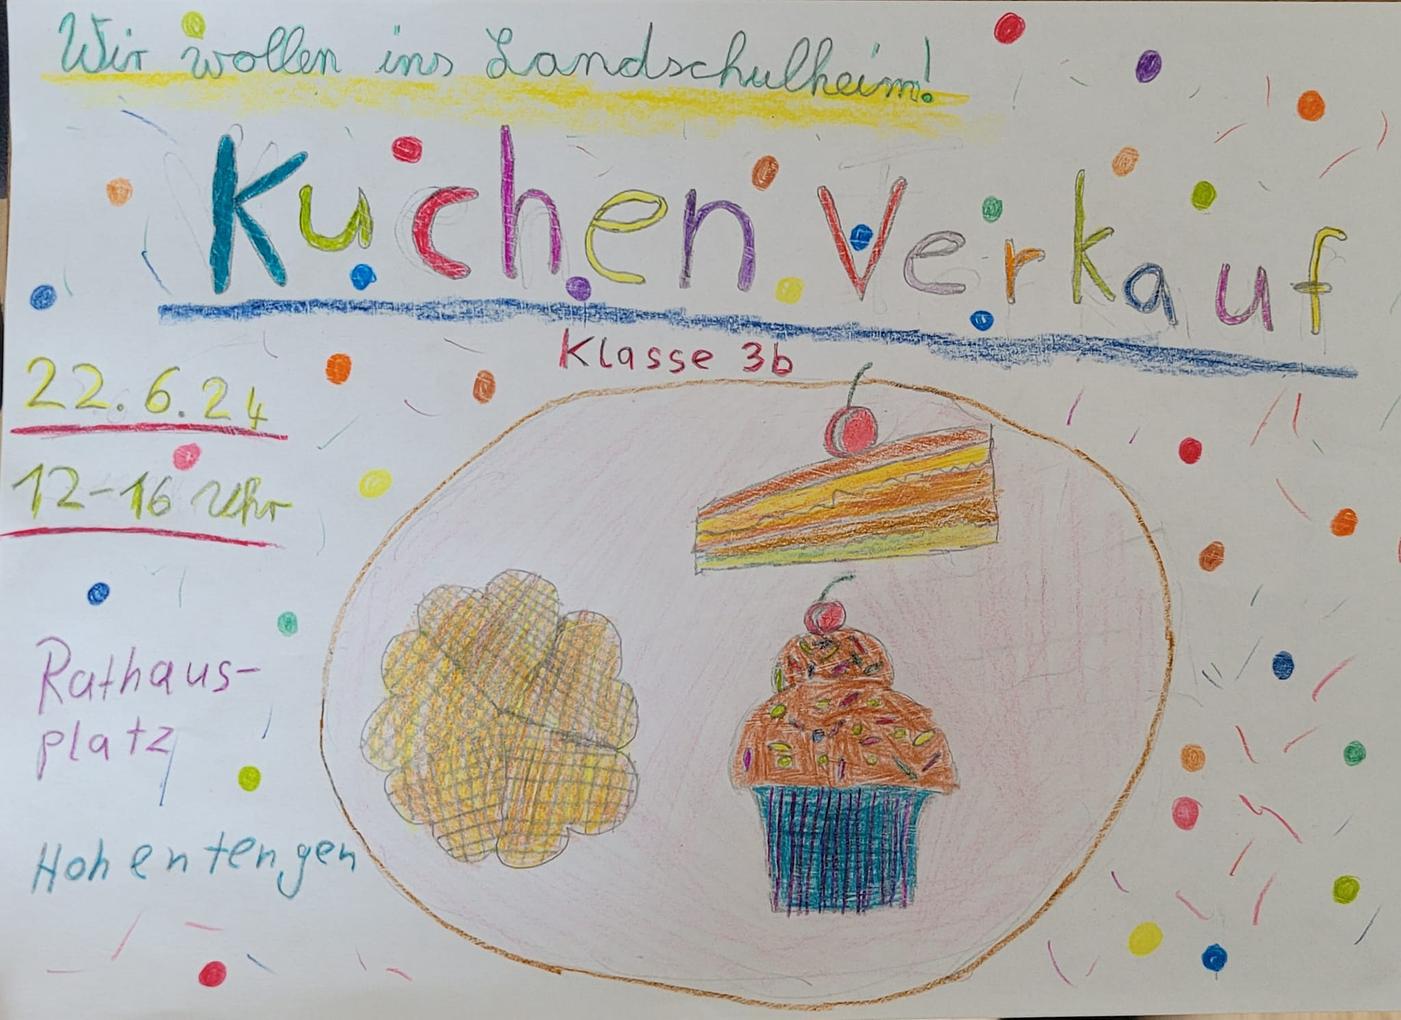 Wir wollen ins Landschulheim!
Kuchen Verkauf
Klasse 3b
22.6.24
12-16 Uhr
Rathaus-
platz
Hohentengen